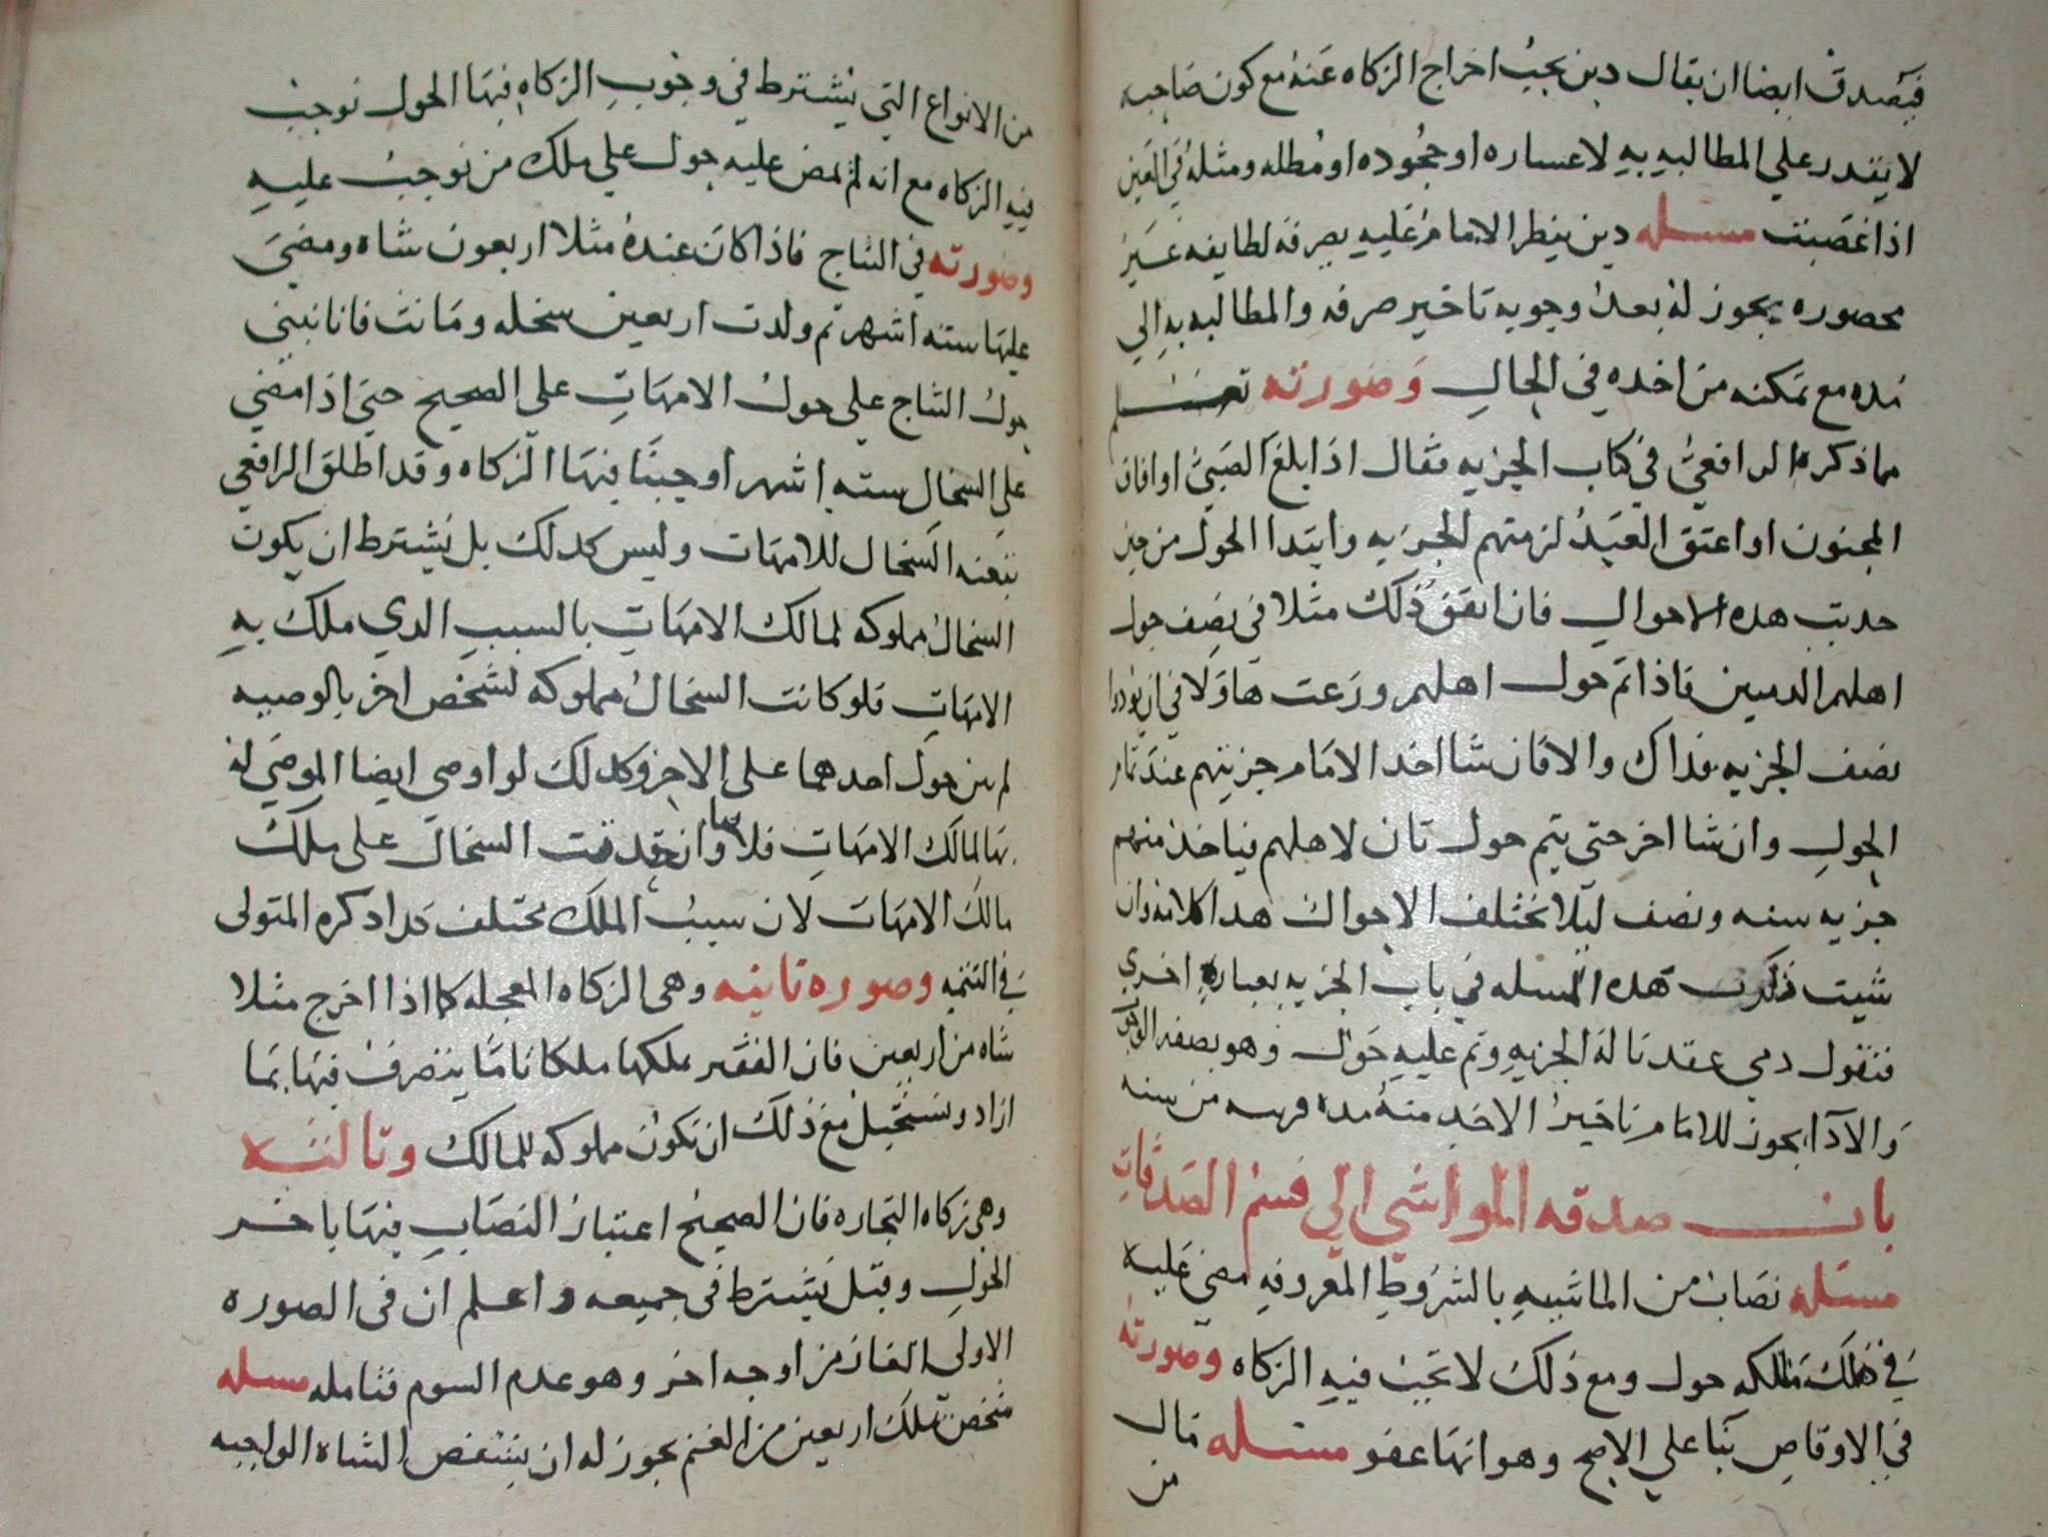 فيصدق ايضا ان يقال دين يجب اخراج الزكاه عنه مع كون صاحبه
لا يقدر علي المطالبه به لاعساره او جحوده او مطله ومثله في العين
اذا غصبت مسله دين ينظر الامام عليه يصرفه لطايفه غير
محصوره يجوز له بعد وجوبه تاخير صرفه والمطالبه به الي
مده مع تمكنه من اخده في الحال وصورته تعلم
مما ذكره الرافعي في كتاب الجزيه فقال اذا بلغ الصبي او افاق
المجنون او اعتق العبد لزمتهم الجزيه وابتدا الحول من حين
حدثت هده الاحوال فان اتفق ذلك مثلا في نصف حول
اهلهم الدميين فاذا تم حول اهلهم ورغب هاولا في ان يودوا
نصف الجزيه فداك والا فان شا اخد الامام جزيتهم عند تمام
الحول وان شا اخر حتى يتم حول ثان لاهلهم فياخذ منهم
جزيه سنه ونصف ليلا تختلف الاحوال هدا كلامه وان
شيت ذكرت هده المسله في باب الجزيه بعباره اخري
فتقول دمي عقدنا له الجزيه وتم عليه حول وهو بصفه الوجوب
والادا يجوز للامام تاخير الاخد منه مده قريبه من سنه
باب صدقه المواشي الي قسم الصدقات
مسله نصاب من الماشيه بالشروط المعروفه مضي عليه
في ملك مالكه حول ومع ذلك لا تجب فيه الزكاه وصورته
في الاوقاص بنا علي الاصح وهو انها عفو مسله مال
من
من الانواع التي يشترط في وجوب الزكاه فيها الحول توجب
فيه الزكاه مع انه لم يمض عليه حول علي ملك من توجب عليه
وصورته في النتاج فاذا كان عنده مثلا اربعون شاه ومضي
عليها سته اشهر ثم ولدت اربعين سخله وماتت فانا نبني
حول النتاج علي حول الامهات علي الصحيح حتى اذا مضي
علي السخال سته اشهر اوجبنا فيها الزكاه وقد اطلق الرافعي
تبعيه السخال للامهات وليس كدلك بل يشترط ان يكون
السخال مملوكه لمالك الامهات بالسبب الدي ملك به
الامهات فلو كانت السخال مملوكه لشخص اخر بالوصيه
لم يبن حول احدهما على الاخر وكدلك لو اوصي ايضا الموصي له
بها لمالك الامهات فلا بنا وان حدثت السخال على ملك
مالك الامهات لان سبب الملك مختلف كدا دكره المتولى
في التتمه وصوره ثانيه وهى الزكاه المعجله كما اذا اخرج مثلا
شاه من اربعين فان الفقير يملكها ملكا تاما يتصرف فيها بما
اراد ونستحيل مع ذلك ان تكون مملوكه للمالك وثالثه
وهى زكاه التجاره فان الصحيح اعتبار النصاب فيها باخر
الحول وقيل يشترط فى جميعه واعلم ان فى الصوره
الاولى الغاز من اوجه اخر وهو عدم السوم فتامله مسله
شخص يملك اربعين من الغنم يجوز له ان ينتقص الشاه الواجبه